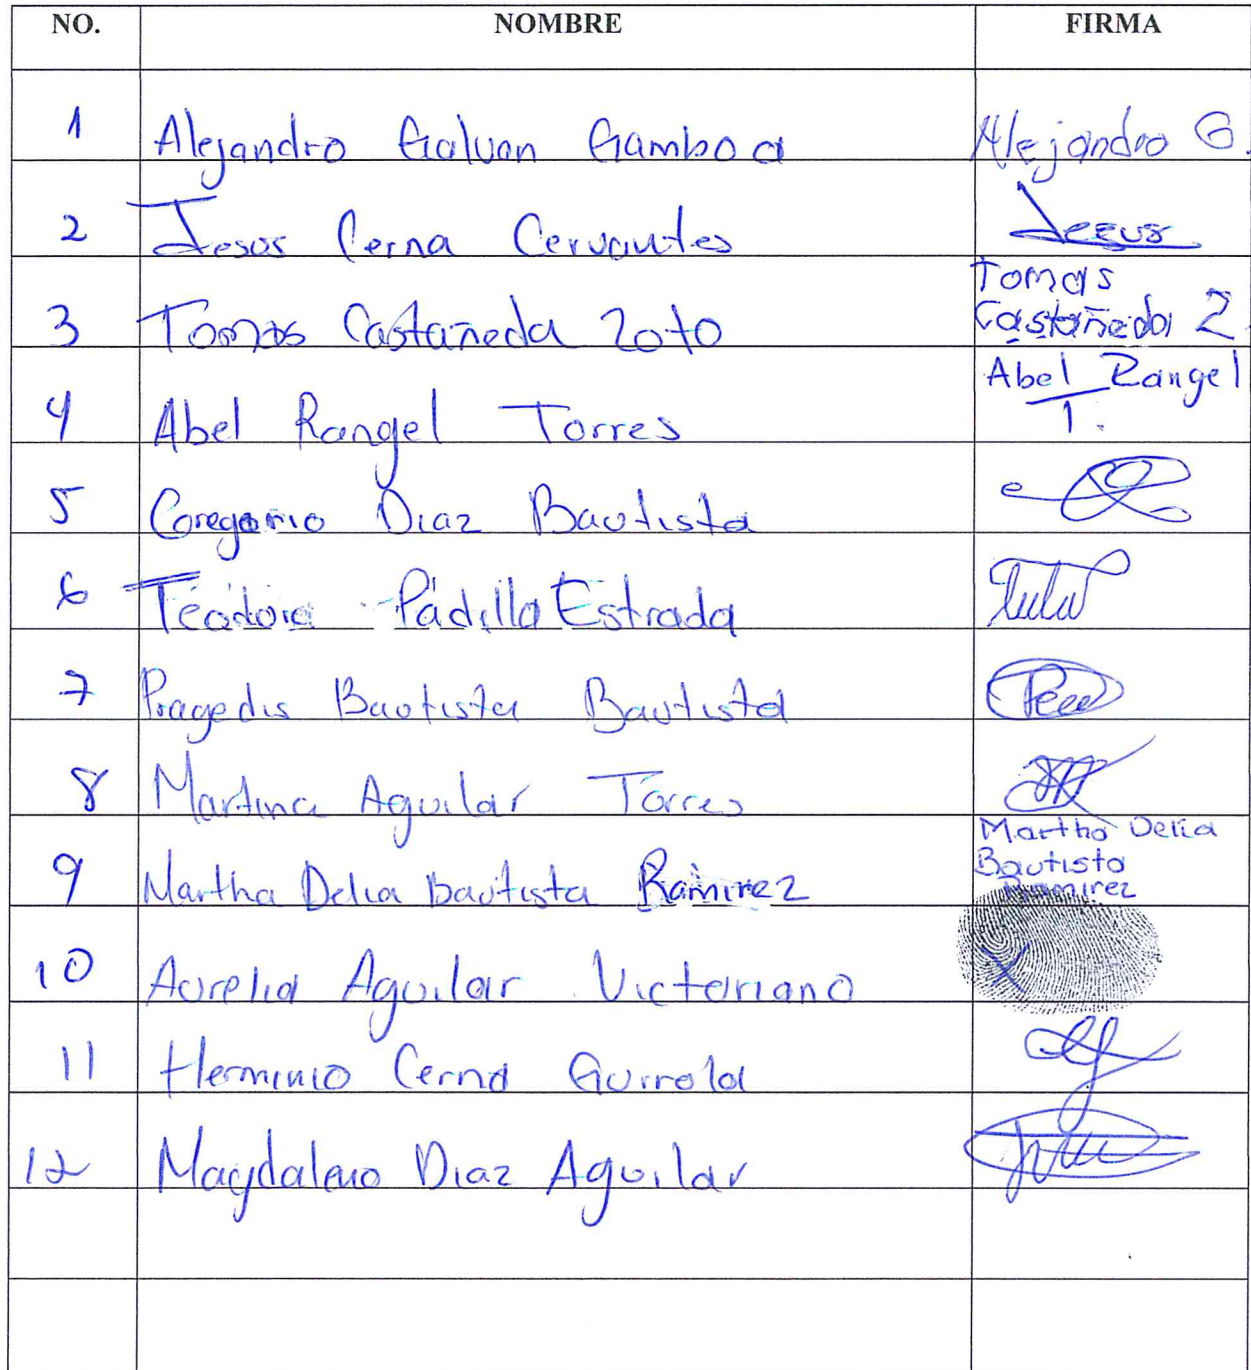 NO. NOMBRE FIRMA
1 Alejandro Galvan Gamboa Alejandro G.
2 Jesus Cerna Cervantes Jesus
3 Tomas Castañeda Zoto Tomas
Castañeda Z.
4 Abel Rangel Torres Abel Rangel
T.
5 Gregorio Diaz Bautista
6 Teodora Padilla Estrada
7 Pragedis Bautista Bautista
8 Martina Aguilar Torres
9 Martha Delia Bautista Ramirez Martha Delia
Bautista
Ramirez
10 Aurelia Aguilar Victoriano X
11 Herminio Cerna Gurrola
12 Magdaleno Diaz Aguilar